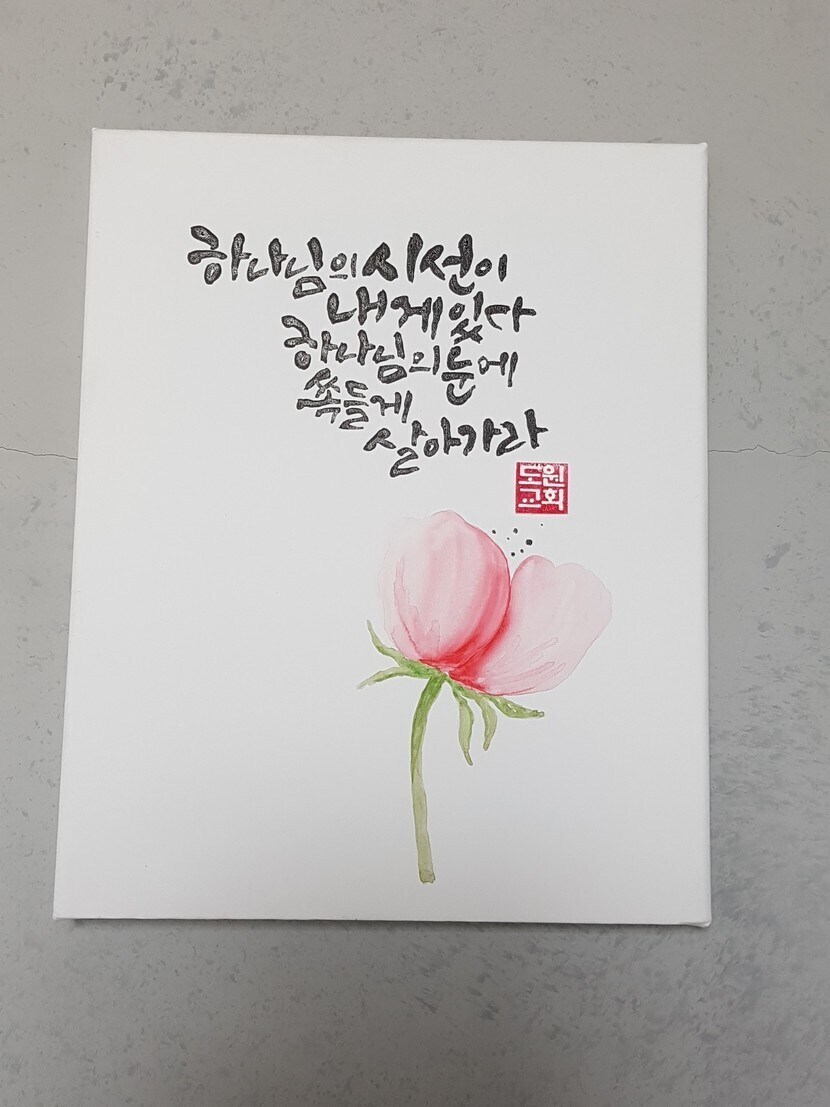 하나님의 시선이
내게 있다
하나님의 눈에
쏙들게
살아가라
도원
교회